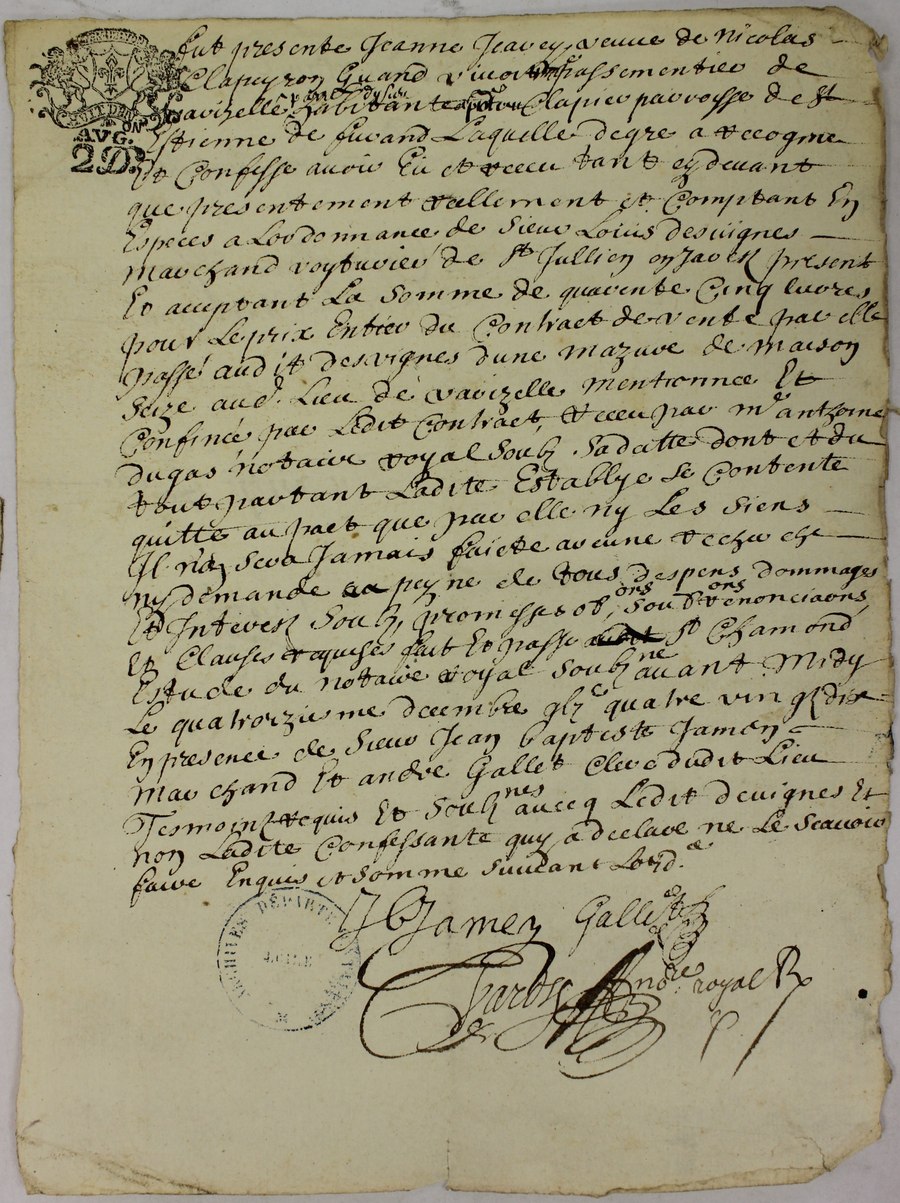 fut presente Jeanne Javey, veuve de Nicolas
Clapeyron Quand vivoit passementier de
Varizelle habitante Clapier parroisse de St
Estienne de furand Laquelle de gre a recogneu
Et Confesse avoir Eu et receu tant cydevant
que presentement reellement et Comptant En
Especes a Lordonnance de Sieur Louis desvignes
marchand voyturier de St Jullien en Jarez present
Et aceptant La somme de quarente Cinq livres
pour Le prix Entier du Contract de vente par elle
passé audit desvignes dune mazure de maison
size aud. Lieu de varizelle mentionnee Et
Confinée par Ledit Contract, receu par me anthoine
dugas notaire royal Soubz Sa datte dont et du
tout partant Ladite Establye se Contente
quitte au pact que par elle ny Les Siens
Il n'en sera Jamais faicte aucune recherche
ny demande a peyne de tous despens dommages
Et Interest Soubz promesses obons, soub. renonciaons
Et Clauses requises fait Et passé St Chamond
Estude du notaire royal Soubzne avant Midy
Le quatorzieme decembre gbze quatre vingtz dix
En presence de Sieur Jean baptiste Jamen
marchand Et andré Gallet Clerc dudit Lieu
Tesmoins requis Et Soubznes avecq Ledit devignes Et
non Ladite Confessante quy a declaré ne Le Scavoir
faire Enquis et somme Suivant Lord.ce
JB Jamen Gallet
nore royal R
AVG.
2 D.
ARCHIVES DÉPARTEMENTALES
LOIRE